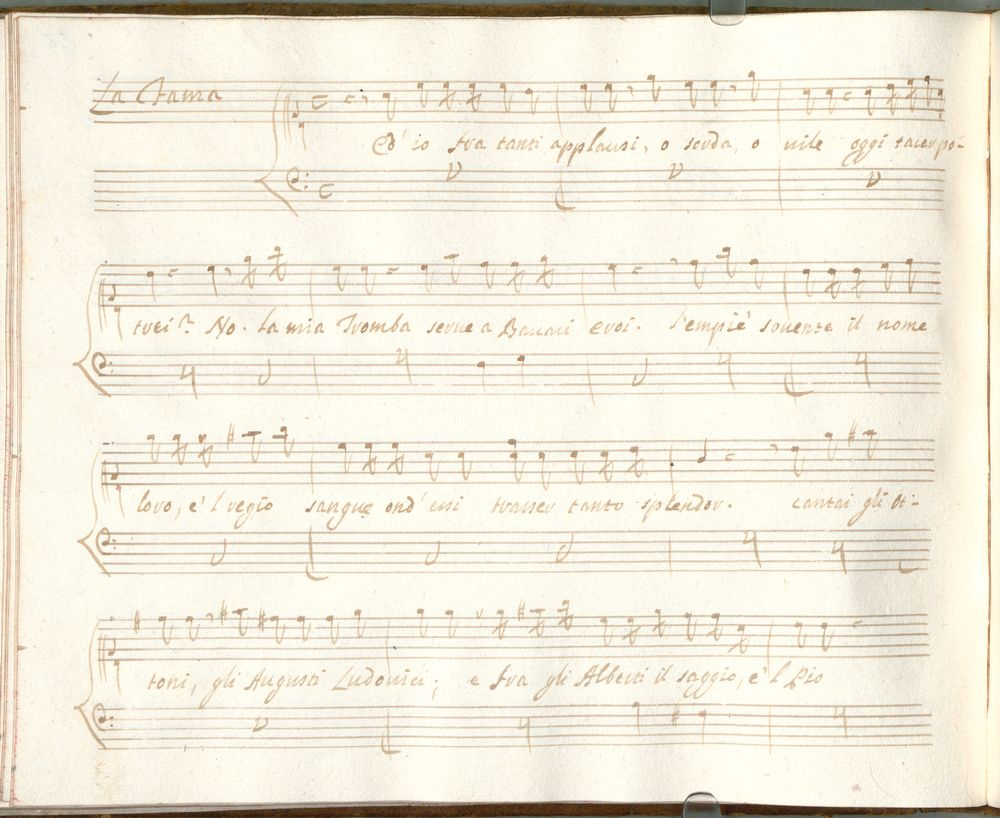 La Fama
Ed' io tra tanti applausi, o sorda, o vile oggi tacer po-
trei? No. La mia Tromba serve a Bavari eroi. S'empiè sovente il nome
loro, e'l regio sangue ond' essi trasser tanto splendor. Cantai gli Ot-
toni, gli Augusti Ludovici; e tra gli Alberti il saggio, e'l Pio